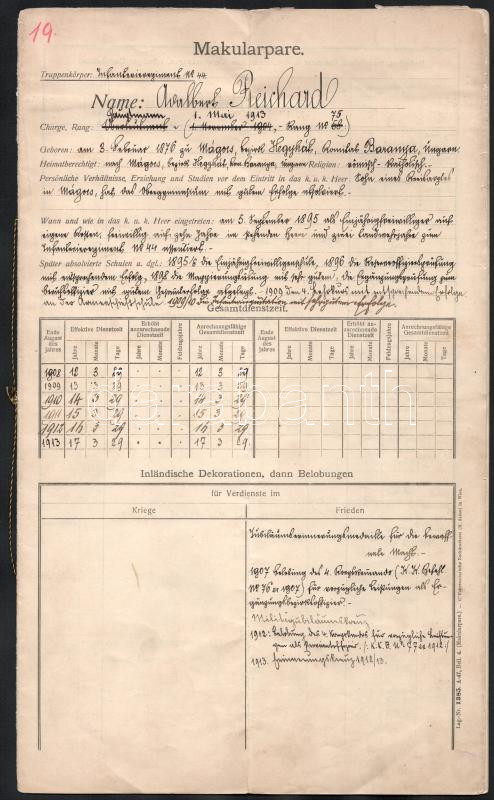 19.
Makularpare.
Truppenkörper: Infanterieregiment № 44
Name: Adalbert Reichard
Hauptmann 1. Mai 1913 75
Charge, Rang: Oberleutnant (1. November 1904, Rang №
Geboren: am 3. Februar 1876 zu Mágócs, Bezirk Hegyhát, Komitat Baranya, Ungarn
Heimatberechtigt: nach Mágócs, Bezirk Hegyhát, Kom. Baranya, Ungarn Religion: römisch-katholisch
Persönliche Verhältnisse, Erziehung und Studien vor dem Eintritt in das k. u. k. Heer: Sohn eines
in Mágócs, hat das Obergymnasium mit gutem Erfolge absolviert.
Wann und wie in das k. u. k. Heer eingetreten: am 5. September 1895 als Einjährigfreiwilliger auf
eigene Kosten, freiwillig auf zehn Jahre im stehenden Heere und zwei Landwehrjahre zum
Infanterieregiment № 44 assentiert.
Später absolvierte Schulen u. dgl.: 1895/6 die Einjährigfreiwilligenschule, 1896 die Reserveoffiziersprüfung
mit entsprechendem Erfolg, 1898 die mit sehr gutem, die Ergänzungsprüfung zum
Berufsoffizier mit gutem Gesamterfolge abgelegt. 1909 den 4. mit entsprechendem Erfolge
an der Armeeschießschule 1909/10 die mit sehr gutem Erfolge.
Gesamtdienstzeit.
Ende August des Jahres Effektive Dienstzeit Erhöht anzurechnende Dienstzeit Feldzugsjahre Anrechnungsfähige Gesamtdienstzeit Ende August des Jahres Effektive Dienstzeit Erhöht anzurechnende Dienstzeit Feldzugsjahre Anrechnungsfähige Gesamtdienstzeit
Jahre Monate Tage Jahre Monate Tage Jahre Monate Tage Jahre Monate Tage Jahre Monate Tage Jahre Monate Tage
1908 12 3 29 12 3 29
1909 13 3 29 13 3 29
1910 14 3 29 14 3 29
1911 15 3 29 15 3 29
1912 16 3 29 16 3 29
1913 17 3 29 17 3 29.
darabanth
Inländische Dekorationen, dann Belobungen
für Verdienste im
Kriege Frieden
Jubiläumserinnerungsmedaille für die bewaff-
nete Macht.-
1907 Belobung des 4. Korpskommando (K. K. Befehl
№ 76 ex 1907) für vorzügliche Leistungen als Er-
gänzungsbezirksoffizier.-
Militärjubiläumskreuz
1912. Belobung des 4. Korpskmdos für vorzügliche Leistun-
gen als /: K.K.B. № 77 ex 1912 :/
1913. Erinnerungskreuz 1912/13.
Lag.-Nr. 1385. A-47, Beil. 4. (Makularpare.)